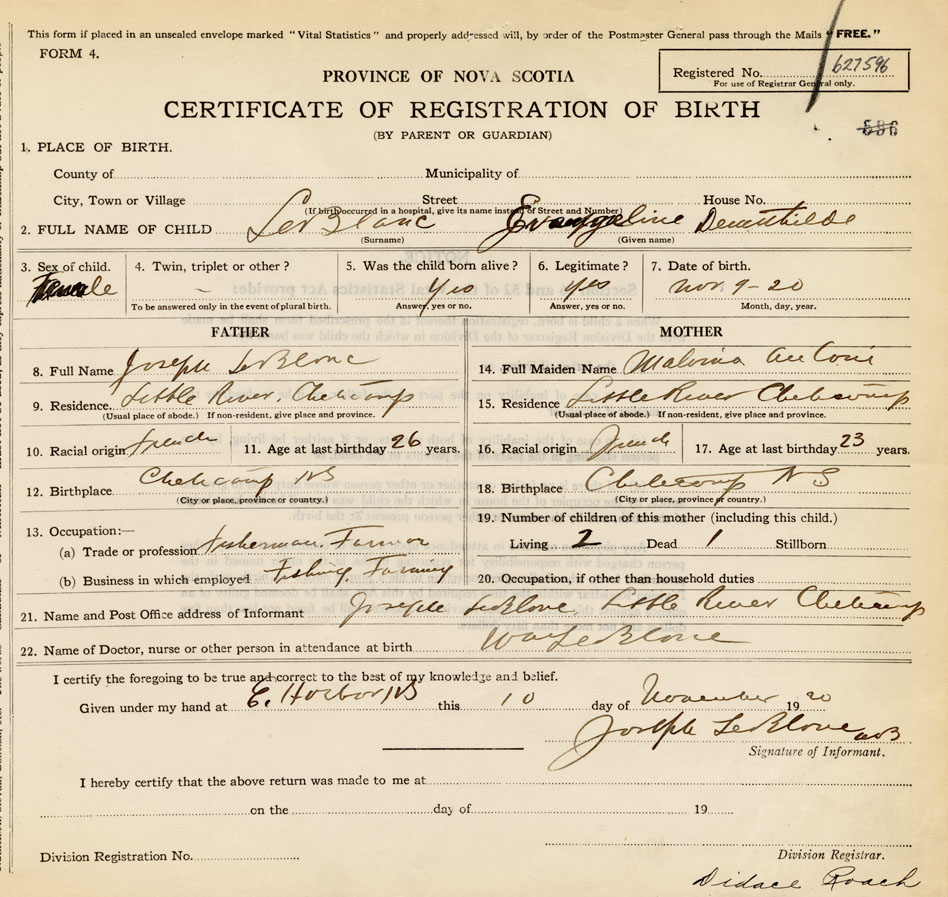 This form if placed in an unsealed envelope marked "Vital Statistics" and properly addressed will, by order of the Postmaster General pass through the Mails "FREE."
FORM 4.
Registered No. 627596
For use of Registrar General only.
PROVINCE OF NOVA SCOTIA
CERTIFICATE OF REGISTRATION OF BIRTH
(BY PARENT OR GUARDIAN)
596
1. PLACE OF BIRTH.
County of Municipality of
City, Town or Village Street House No.
(If birth occurred in a hospital, give its name instead of Street and Number)
2. FULL NAME OF CHILD LeBlanc Evangeline
(Surname) (Given name)
3. Sex of child. 4. Twin, triplet or other? 5. Was the child born alive? 6. Legitimate? 7. Date of birth.
Female – Yes yes Nov. 9-20
To be answered only in the event of plural birth. Answer, yes or no. Answer, yes or no. Month, day, year.
FATHER
8. Full Name Joseph LeBlanc
9. Residence. Little River, Cheticamp
(Usual place of abode.) If non-resident, give place and province.
10. Racial origin french 11. Age at last birthday 26 years.
12. Birthplace Cheticamp NS
(City or place, province or country.)
13. Occupation:—
(a) Trade or profession fisherman, Farmer
(b) Business in which employed Fishing, Farming
MOTHER
14. Full Maiden Name Malvina
15. Residence Little River Cheticamp
(Usual place of abode.) If non-resident, give place and province.
16. Racial origin french 17. Age at last birthday 23 years.
18. Birthplace Cheticamp N S
(City or place, province or country.)
19. Number of children of this mother (including this child.)
Living 2 Dead 1 Stillborn
20. Occupation, if other than household duties
21. Name and Post Office address of Informant Joseph LeBlanc, Little River Cheticamp
22. Name of Doctor, nurse or other person in attendance at birth LeBlanc
I certify the foregoing to be true and correct to the best of my knowledge and belief.
Given under my hand at E. Harbor NS this 10 day of November 1920
Joseph LeBlanc
Signature of Informant.
I hereby certify that the above return was made to me at
on the day of 19
Division Registration No.
Division Registrar.
Didace Roach